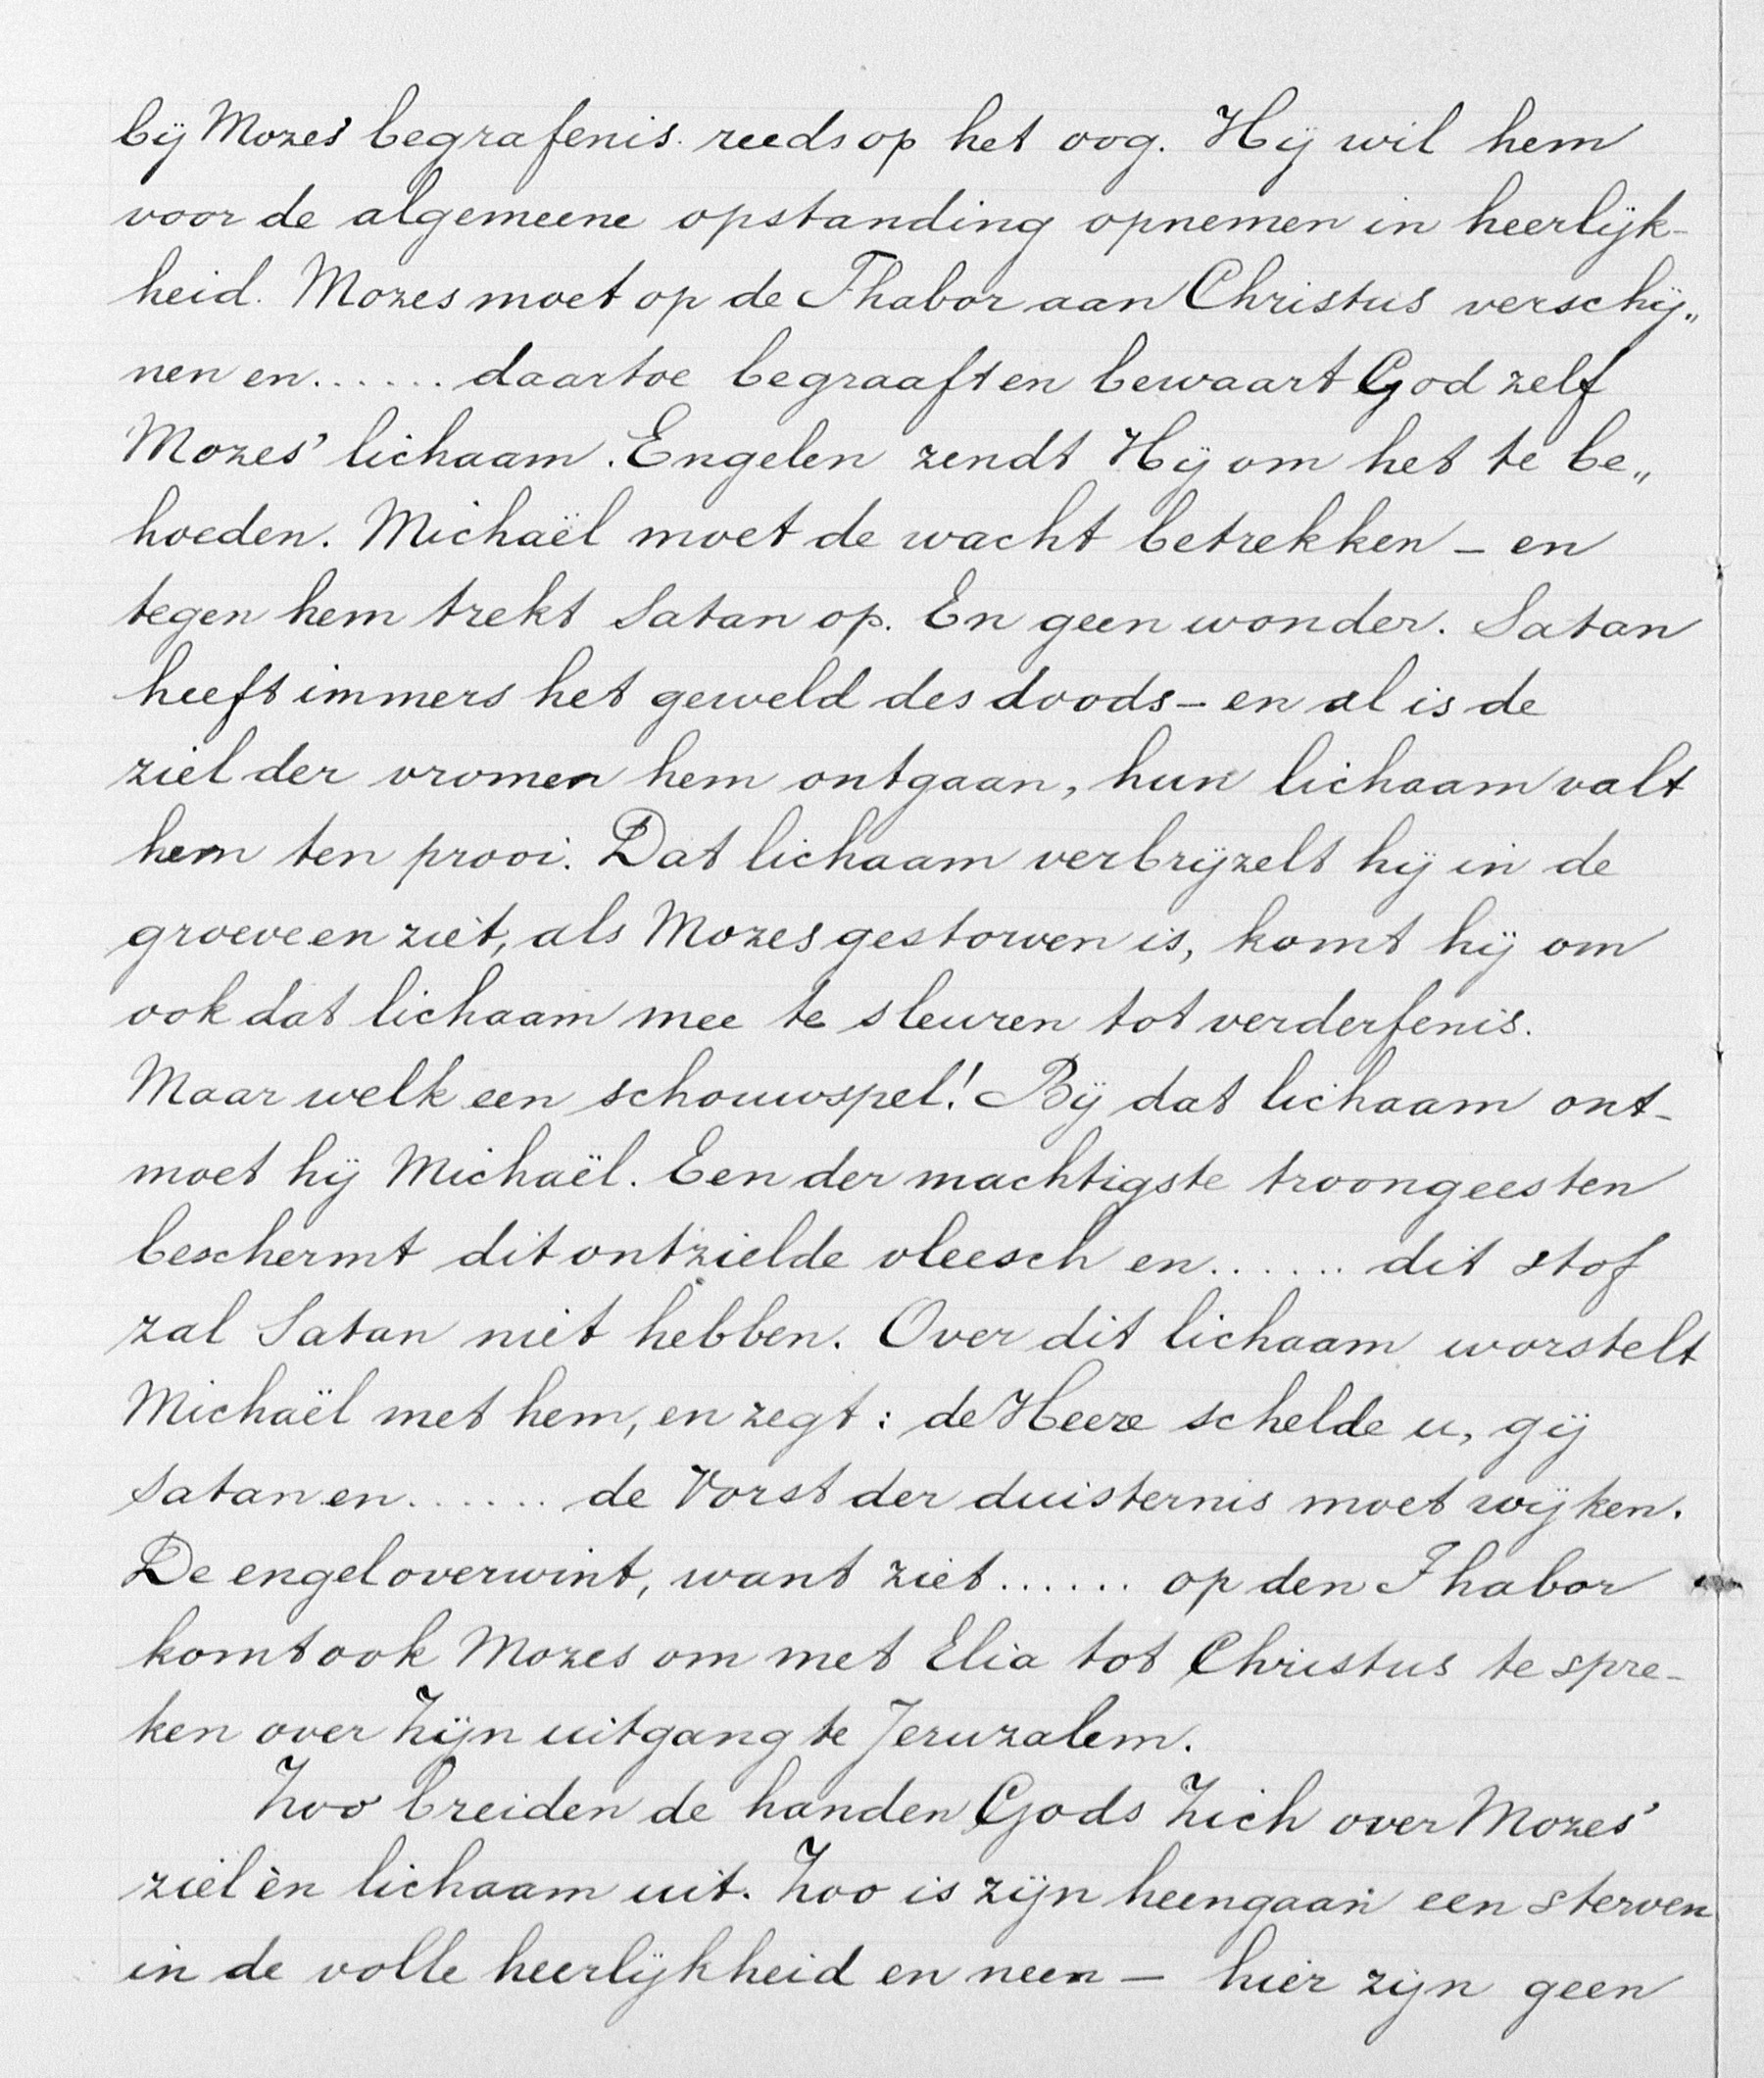 bij Mozes' begrafenis reeds op het oog. Hij wil hem
voor de algemeene opstanding opnemen in heerlijk-
heid. Mozes moet op de Thabor aan Christus verschij„
nen en...... daartoe begraaft en bewaart God zelf
Mozes' lichaam. Engelen zendt Hij om het te be„
hoeden. Michaël moet de wacht betrekken - en
tegen hem trekt Satan op. En geen wonder. Satan
heeft immers het geweld des doods - en al is de
ziel der vromen hem ontgaan, hun lichaam valt
hem ten prooi. Dat lichaam verbrijzelt hij in de
groeve en ziet, als Mozes gestorven is, komt hij om
ook dat lichaam mee te sleuren tot verderfenis.
Maar welk een schouwspel! Bij dat lichaam ont-
moet hij Michaël. Een der machtigste troongeesten
beschermt dit ontzielde vleesch en...... dit stof
zal Satan niet hebben. Over dit lichaam worstelt
Michaël met hem, en zegt: de Heere schelde u, gij
Satan en...... de Vorst der duisternis moet wijken.
De engel overwint, want ziet...... op den Thabor
komt ook Mozes om met Elia tot Christus te spre-
ken over Zijn uitgang te Jeruzalem.
Zoo breiden de handen Gods Zich over Mozes'
ziel èn lichaam uit. Zoo is zijn heengaan een sterven
in de volle heerlijkheid en neen - hier zijn geen